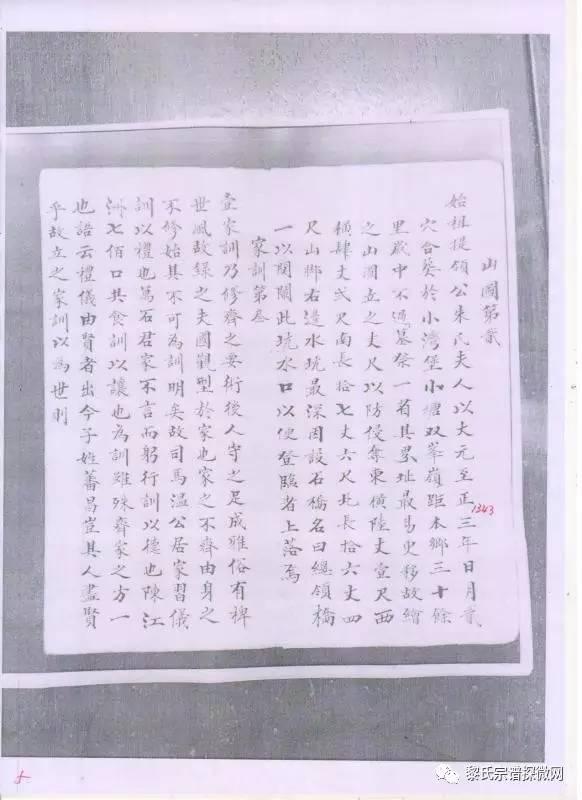 山圖第貳
始祖提領公朱氏夫人以大元至正三年日月貳
1343
穴合葬於小灣堡小塘双峯嶺距本鄉三十餘
里歲中不過墓祭一首其界址最易史移故繪
之山圖立之丈尺以防侵奪東橫陸丈壹尺西
橫肆丈弍尺南長拾七丈六尺北長拾六丈四
尺山脚右邊水坑最深因設石橋名曰總領橋
一以関闌此坑水口以便登臨者上落焉
家訓第叁
壹家訓乃修齊之要術後人守之足成雅俗有裨
世風故録之夫國觀型於家也家之不齊由身之
不修始其不可為訓明矣故司馬溫公居家習儀
訓以禮也萬石君家不言而躬行訓以德也陳江
洲七佰口共食訓以讓也為訓雖殊齊家之方一
也語云禮儀由賢者出今子姓蕃昌豈其人盡賢
乎故立之家訓以為世則
黎氏宗谱探微网